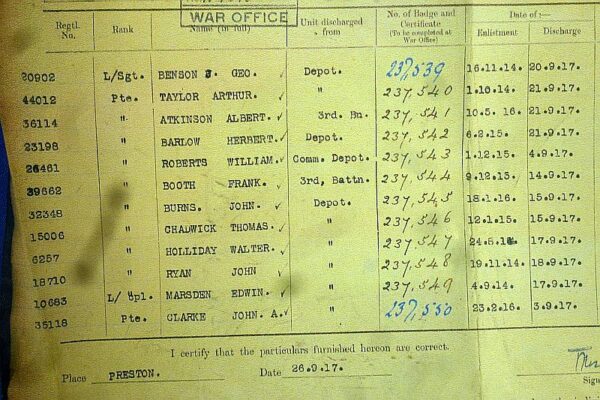 WAR OFFICE
Regtl. No. Rank Name (in full) Unit discharged from No. of Badge and Certificate (To be completed at War Office) Date of :— Enlistment Discharge
20902 L/Sgt. BENSON J. GEO. ✓ Depot. 237,539 16.11.14. 20.9.17.
44012 Pte. TAYLOR ARTHUR. ✓ " 237,540 1.10.14. 21.9.17.
36114 " ATKINSON ALBERT. ✓ 3rd. Bn. 237,541 10.5.16. 21.9.17.
23198 " BARLOW HERBERT. ✓ Depot. 237,542 6.2.15. 21.9.17.
26461 " ROBERTS WILLIAM. ✓ Comm. Depot. 237,543 1.12.15. 4.9.17.
39662 " BOOTH FRANK. ✓ 3rd, Battn. 237,544 9.12.15. 14.9.17.
32348 " BURNS. JOHN. ✓ Depot. 237,545 18.1.16. 15.9.17.
15006 " CHADWICK THOMAS. ✓ " 237,546 12.1.15. 15.9.17.
6257 " HOLLIDAY WALTER. ✓ " 237,547 17.9.17.
18710 " RYAN JOHN ✓ " 237,548 19.11.14. 18.9.17.
10683 L/Cpl. MARSDEN EDWIN. ✓ " 237,549 4.9.14. 17.9.17.
35118 Pte. CLARKE JOHN. A. ✓ " 237,550 23.2.16. 3.9.17.
I certify that the particulars furnished hereon are correct.
Place PRESTON. Date 26.9.17.